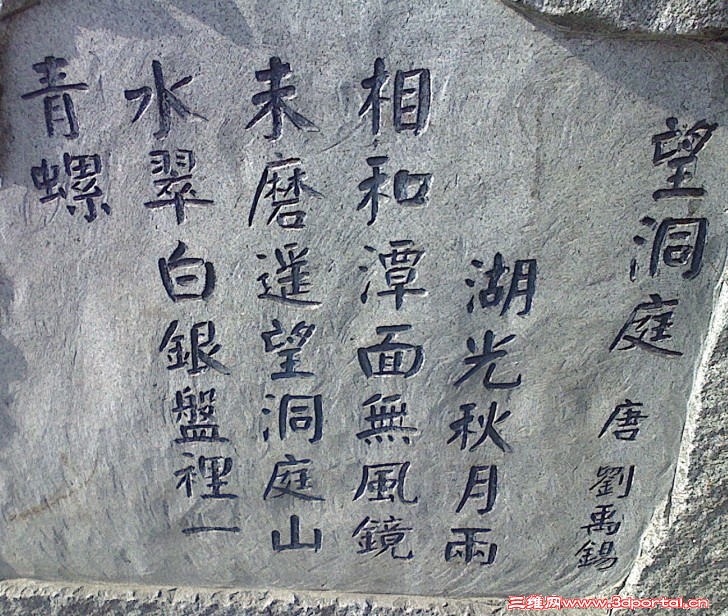 望洞庭
唐 劉禹錫
湖光秋月兩
相和潭面無風鏡
未磨遥望洞庭山
水翠白銀盤裡一
青螺
三维网www.3dportal.cn